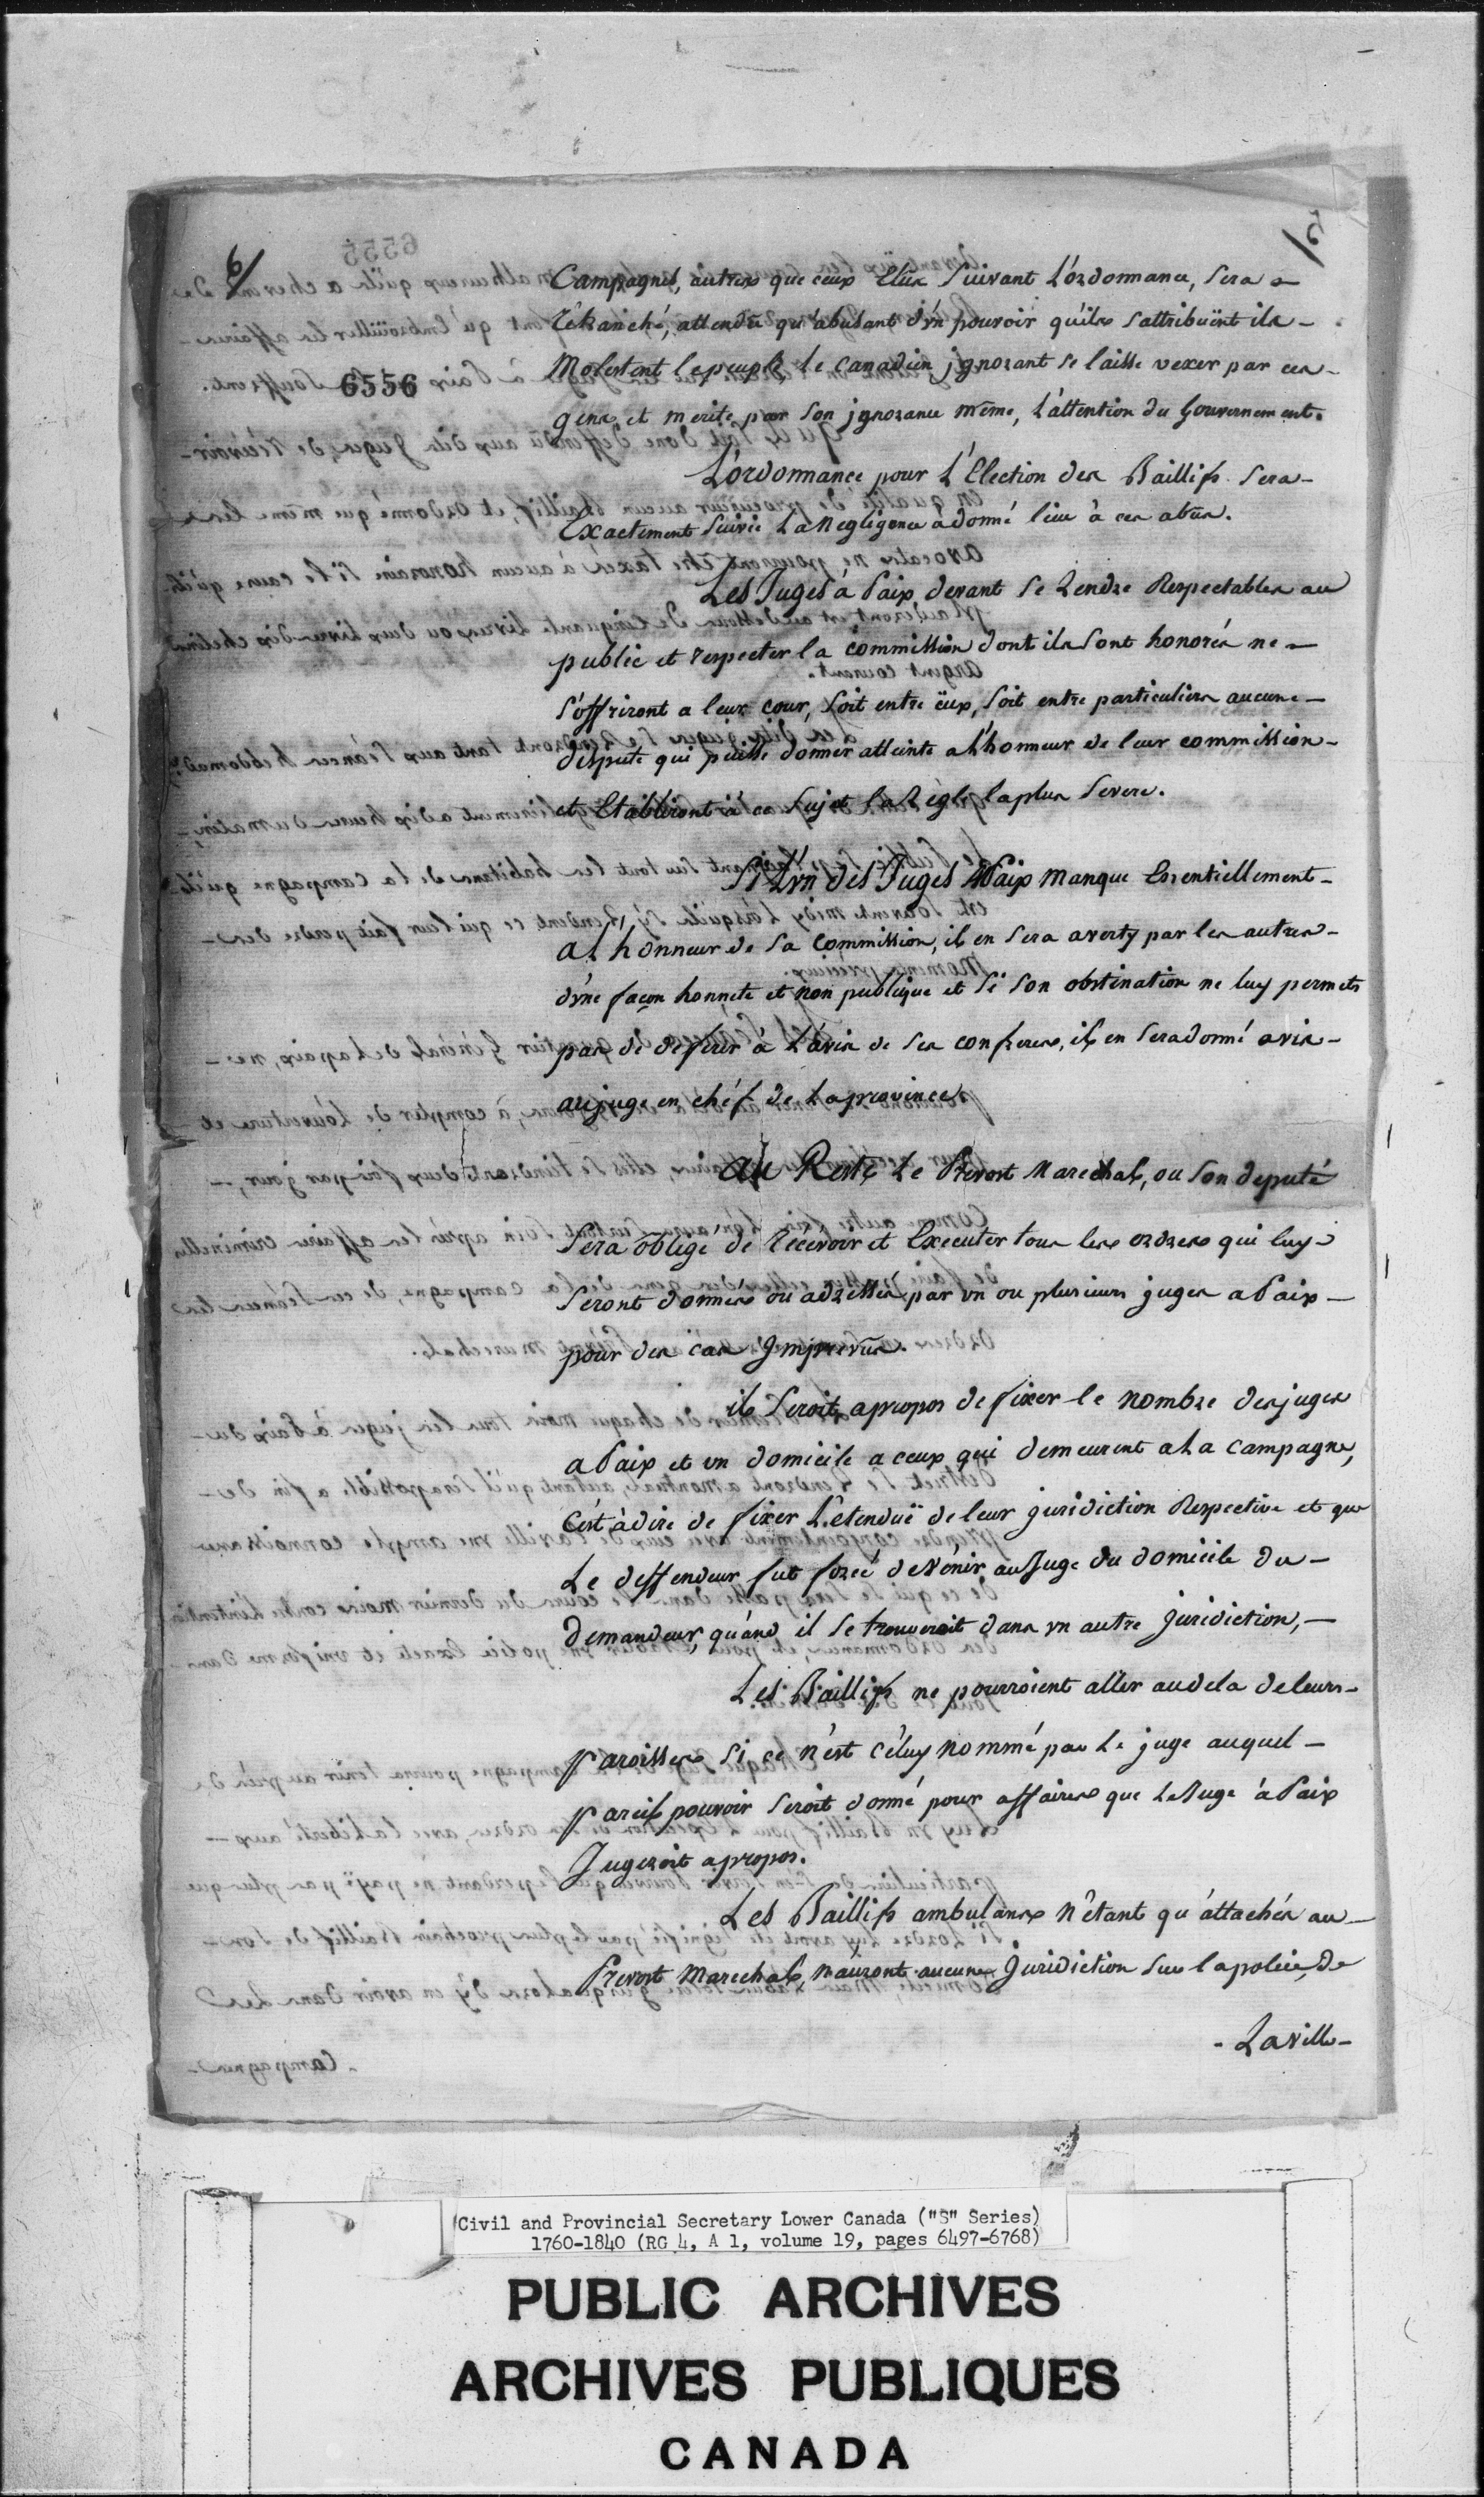 6/
6556
Campagnes, autres que ceux Elûs Suivant L'ordonnance, sera
Rétranché, attendû qu'abusant d'vn pouvoir qu'ils s'attribuënt ils
Molestent le peuple, le Canadien jgnorant se laisse vexer par ces
gens, et merite par son jgnorance même, L'attention du Gouvernement.
L'ordonnance pour L'Election des Baillifs sera
Exactement Suivie La Negligence a donné lieu à ces abûs.
Les Juges à Paix devant se Rendre Respectables au
public et respecter la commission dont ils sont honorés ne
s'offriront a leur cour, soit entre eüx, soit entre particuliers aucune
dispute qui puisse donner atteinte a l'honneur de leur commission
et Etabliront à ce sujet la Régle la plus severe.
Si L'vn des Juges à Paix manque Essentiellement
a L'honneur de sa Commission, il en sera averty par les autres
d'vne façon honnete et non publique et si son obstination ne luy permets
pas de déferer à L'avis de ses confreres, il en sera donné avis
au juge en chéf de la province.
au Reste Le Prevost Marechal, ou son deputé
sera obligé de Recevoir et Executer tous les ordres qui luy
seront donnés ou adressés par vn ou plusieurs juges a Paix
pour des cas Jmprevûs.
il seroit apropos de fixer le nombre des juges
a Paix et vn domicile a ceux qui demeurent a La Campagne,
C'est à dire de fixer L'etenduë de leur juridiction Respective et que
Le deffendeur fut forcé de vénir au Juge du domicile du
demandeur, quand il se trouveroit dans vn autre juridiction,
Les Baillifs ne pourroient aller au dela de leurs
paroisses si ce n'est céluy nommé par Le juge auquel
pareil pouvoir seroit donné pour affaires que Le Juge à Paix
Jugeroit apropos.
Les Baillifs ambulans n'étant qu'attachés au
Prevost Marechal, n'auront aucune Juridiction sur la police, de
- La ville -
Civil and Provincial Secretary Lower Canada ("S" Series)
1760-1840 (RG 4, A 1, volume 19, pages 6497-6768)
PUBLIC ARCHIVES
ARCHIVES PUBLIQUES
CANADA